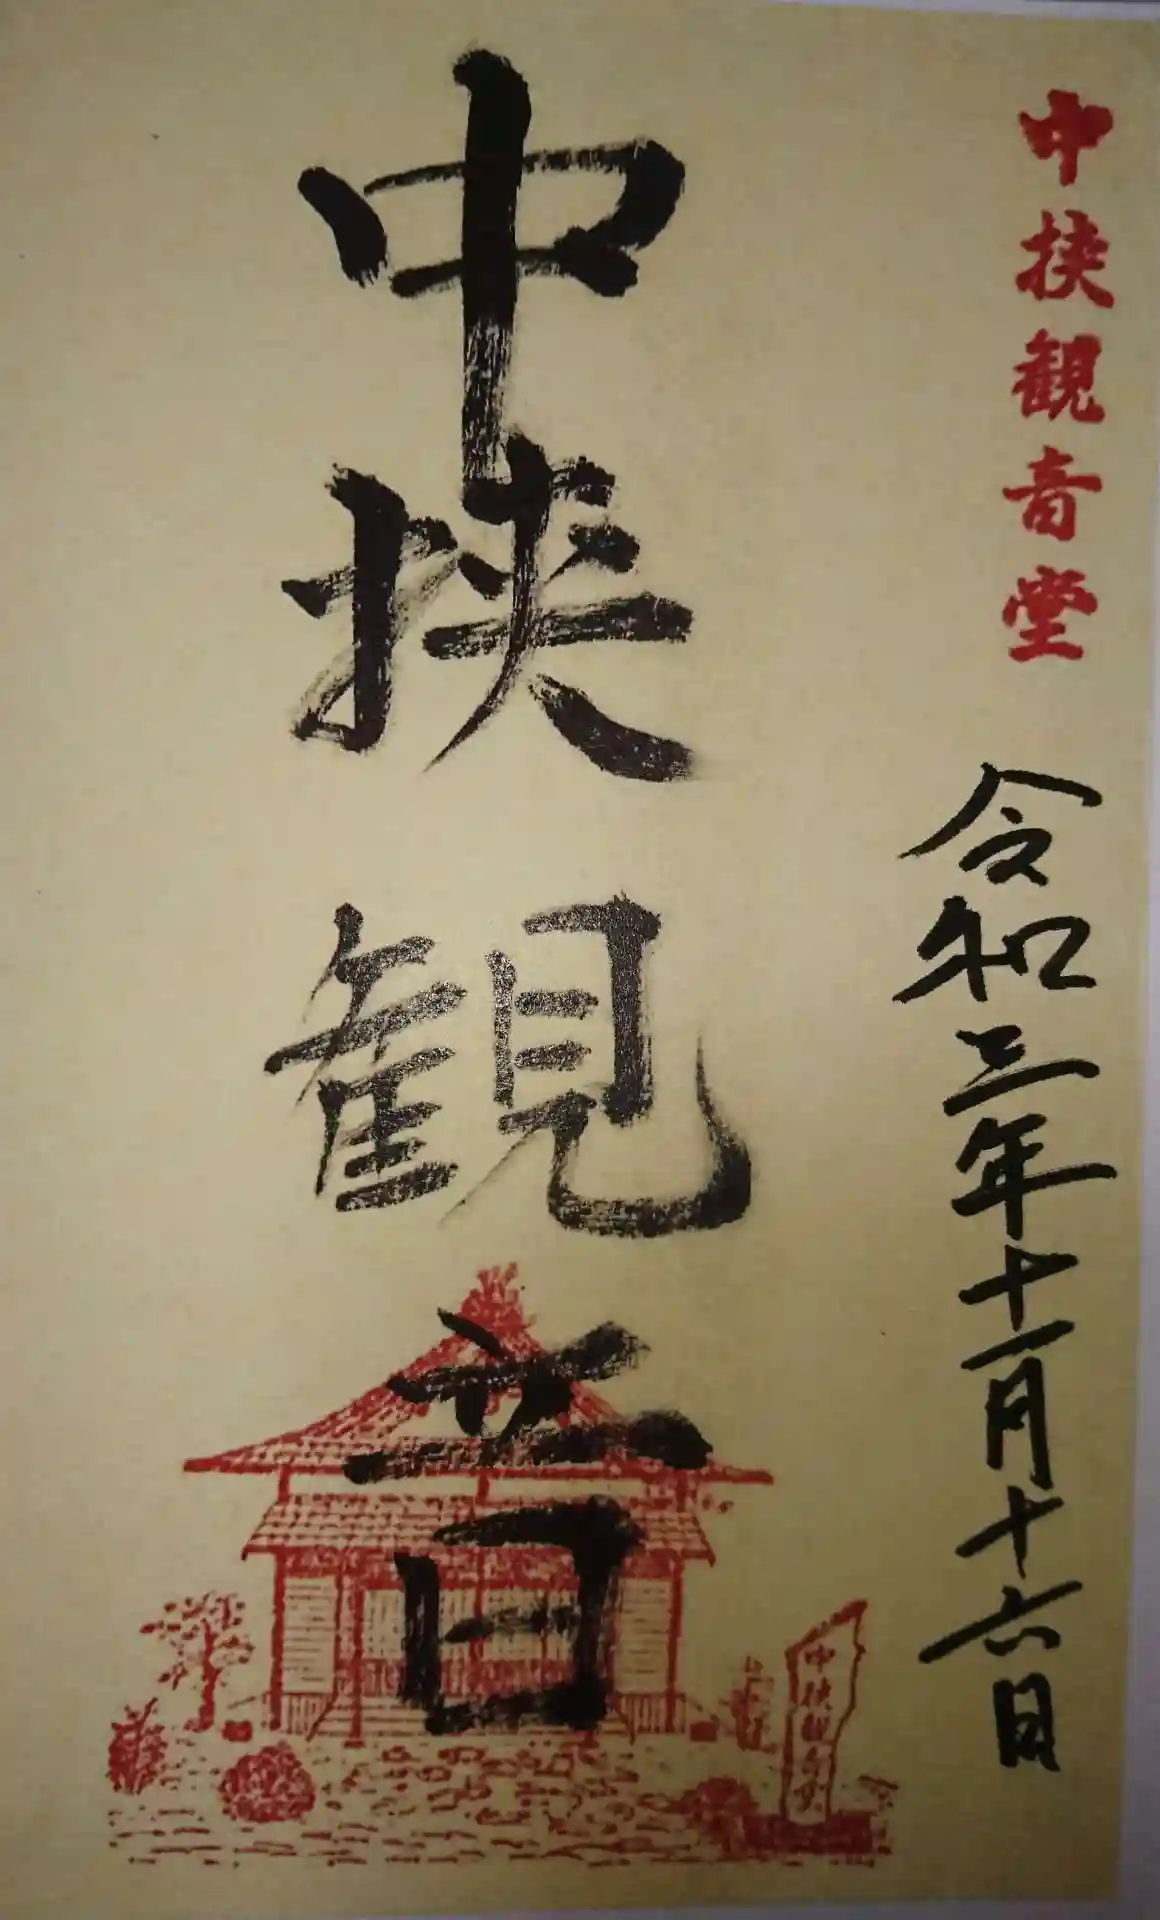 中挟観音堂
令和三年十一月十六日
中挟観音
中挟観音堂